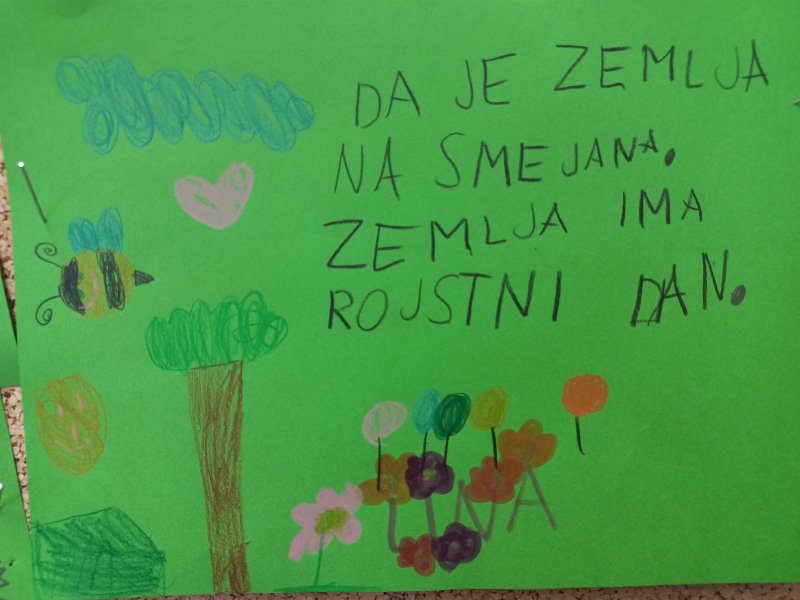 DA JE ZEMLJA
NA SMEJANA.
ZEMLJA IMA
ROJSTNI DAN.
LINA